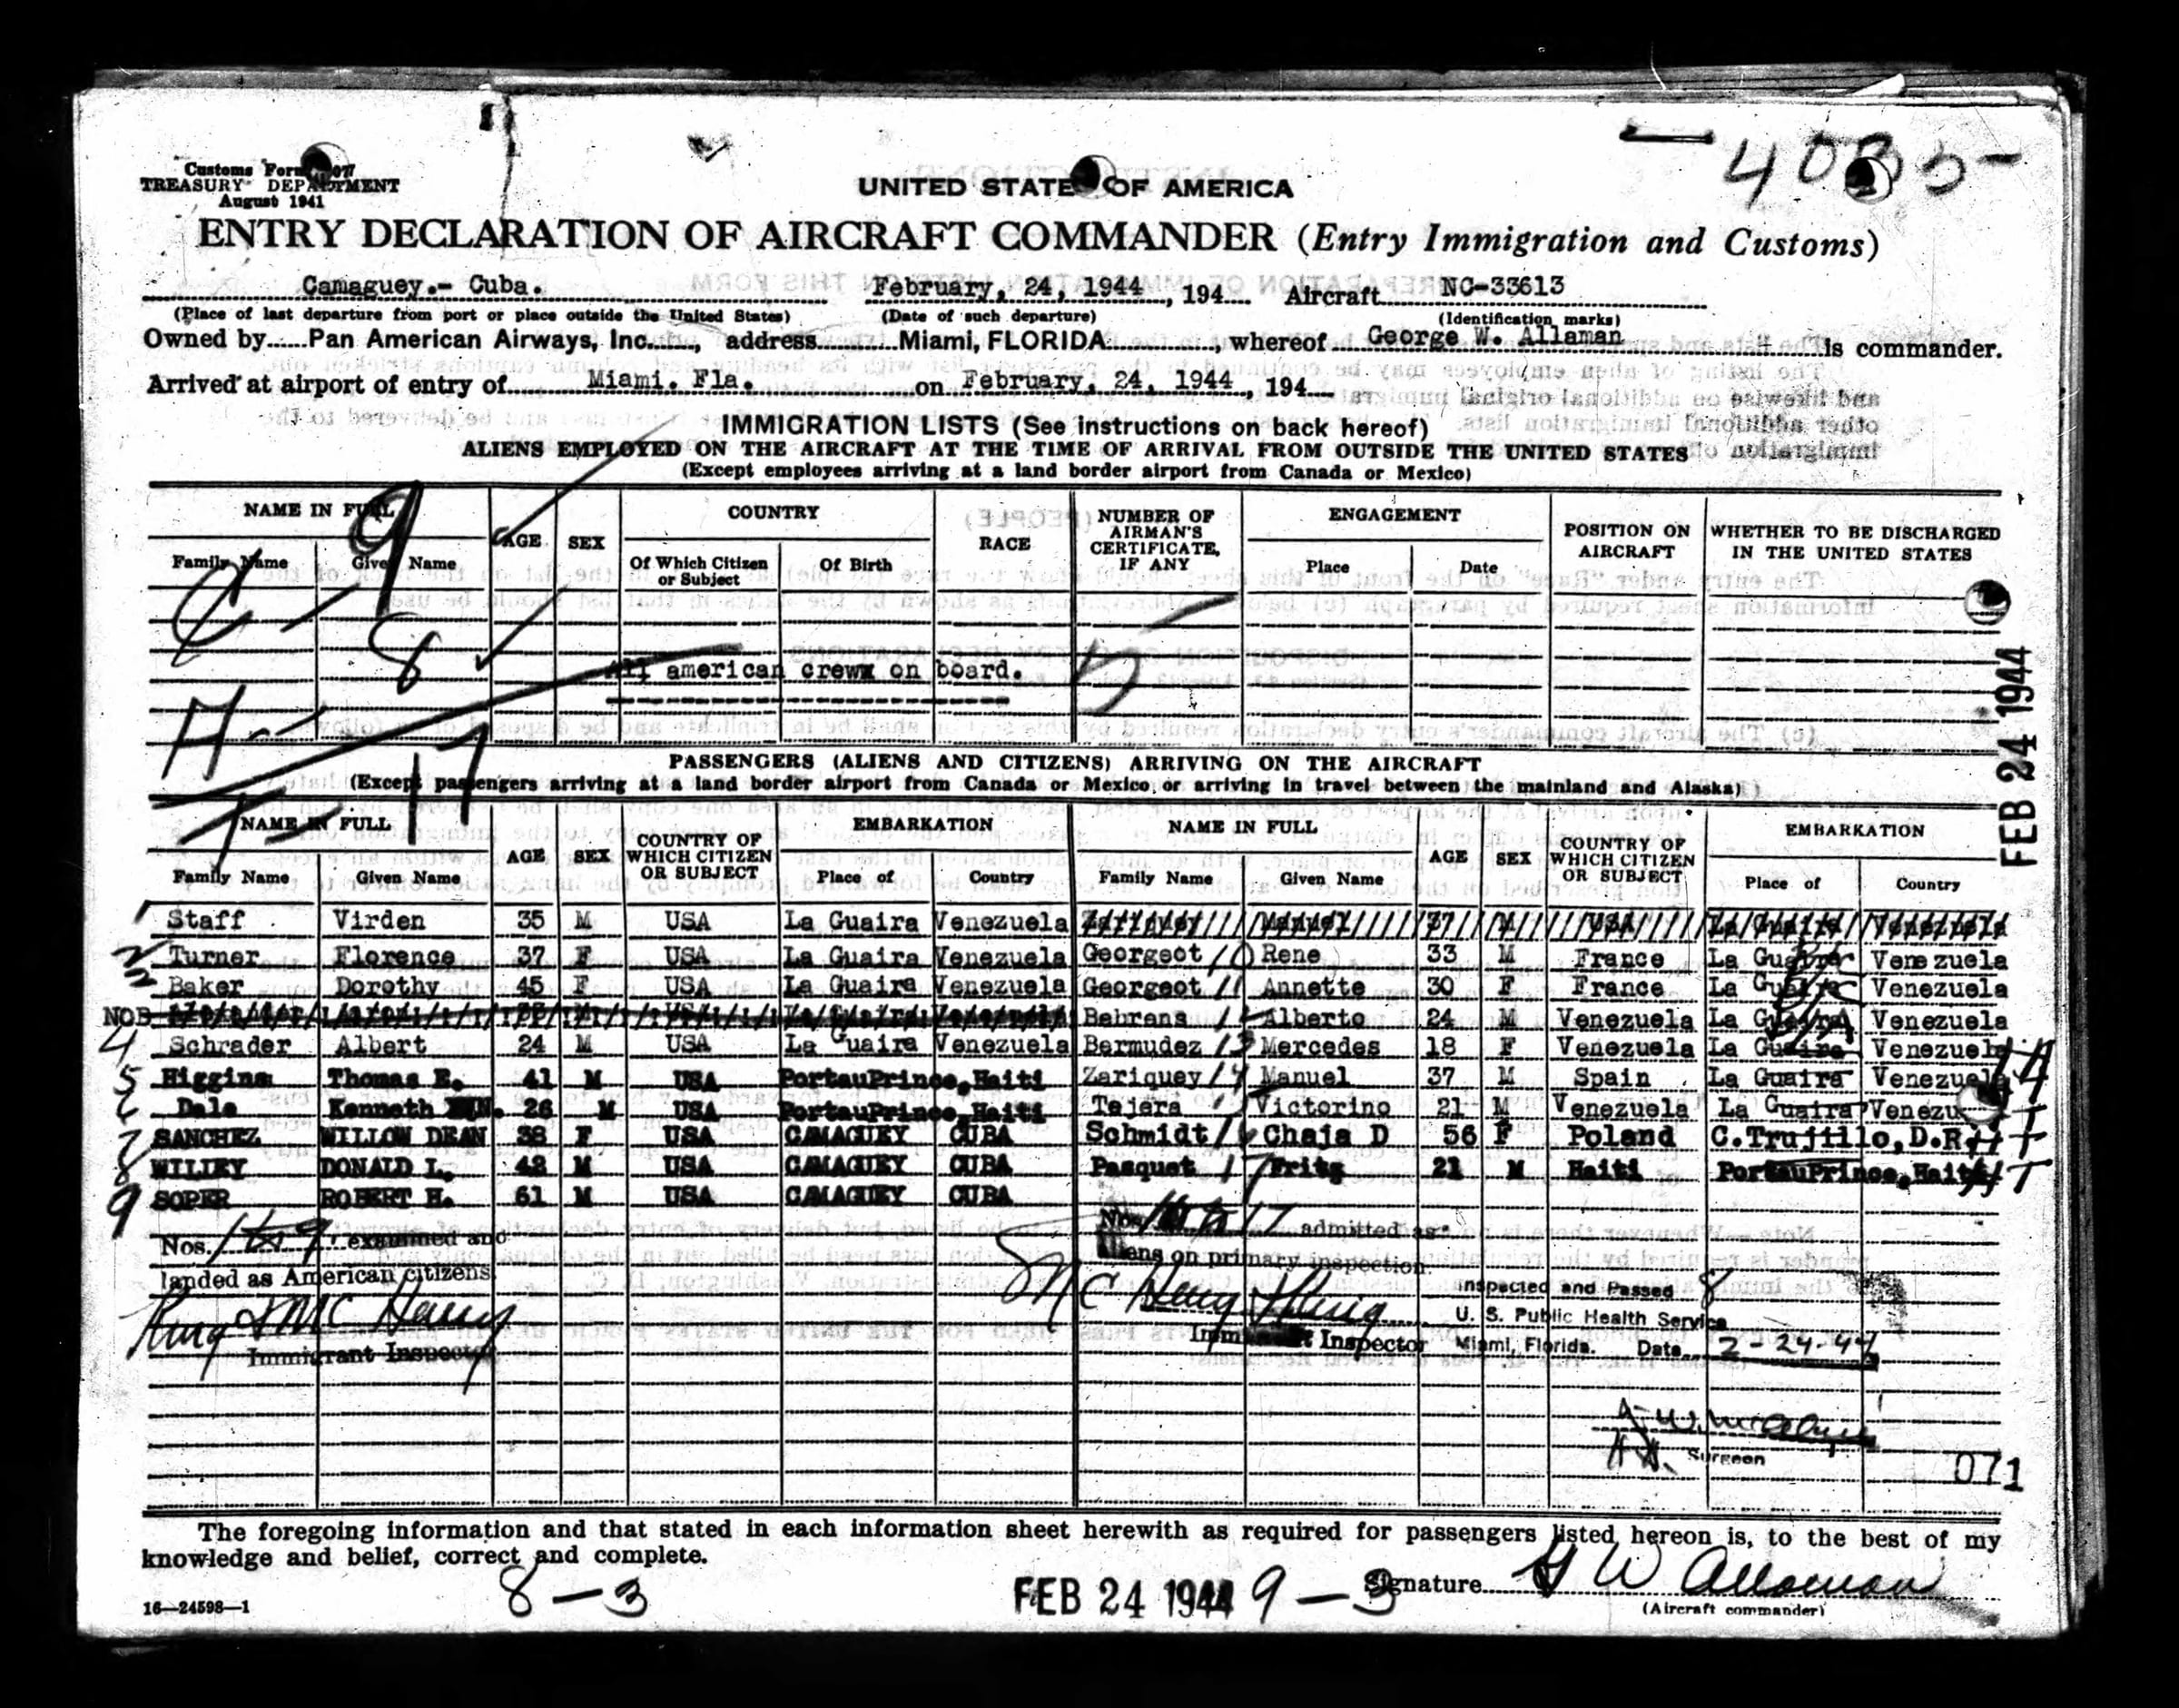 4035-
Customs Form
TREASURY DEPARTMENT
August 1941
UNITED STATES OF AMERICA
ENTRY DECLARATION OF AIRCRAFT COMMANDER (Entry Immigration and Customs)
Camaguey.- Cuba. February, 24, 1944, 194 Aircraft NC-33613
(Place of last departure from port or place outside the United States) (Date of such departure) (Identification marks)
Owned by Pan American Airways, Inc., address Miami, FLORIDA, whereof George W. Allaman is commander.
Arrived at airport of entry of Miami. Fla. on February, 24, 1944, 194
IMMIGRATION LISTS (See instructions on back hereof)
ALIENS EMPLOYED ON THE AIRCRAFT AT THE TIME OF ARRIVAL FROM OUTSIDE THE UNITED STATES
(Except employees arriving at a land border airport from Canada or Mexico)
NAME IN FULL AGE SEX COUNTRY RACE NUMBER OF AIRMAN'S CERTIFICATE, IF ANY ENGAGEMENT POSITION ON AIRCRAFT WHETHER TO BE DISCHARGED IN THE UNITED STATES
Family Name Given Name Of Which Citizen or Subject Of Birth Place Date
C - 9
8
All american crew on board.
A - 17
FEB 24 1944
PASSENGERS (ALIENS AND CITIZENS) ARRIVING ON THE AIRCRAFT
(Except passengers arriving at a land border airport from Canada or Mexico, or arriving in travel between the mainland and Alaska)
NAME IN FULL AGE SEX COUNTRY OF WHICH CITIZEN OR SUBJECT EMBARKATION NAME IN FULL AGE SEX COUNTRY OF WHICH CITIZEN OR SUBJECT EMBARKATION
Family Name Given Name Place of Country Family Name Given Name Place of Country
1 Staff Virden 35 M USA La Guaira Venezuela 37 M USA La Guaira Venezuela
2 Turner Florence 37 F USA La Guaira Venezuela Georgeot 10 Rene 33 M France La Guaira Venezuela
3 Baker Dorothy 45 F USA La Guaira Venezuela Georgeot 11 Annette 30 F France La Guaira Venezuela
NOB USA La Guaira Venezuela Behrens 12 Alberto 24 M Venezuela La Guaira Venezuela
4 Schrader Albert 24 M USA La Guaira Venezuela Bermudez 13 Mercedes 18 F Venezuela La Guaira Venezuela
5 Higgins Thomas E. 41 M USA PortauPrince, Haiti Zariquey 14 Manuel 37 M Spain La Guaira Venezuela
6 Dale Kenneth N. 26 M USA PortauPrince, Haiti Tejera 15 Victorino 21 M Venezuela La Guaira Venezu
7 SANCHEZ WILLOW DEAN 38 F USA CAMAGUEY CUBA Schmidt 16 Chaja D 56 F Poland C.Trujillo, D.R.
8 WILLEY DONALD L. 42 M USA CAMAGUEY CUBA Pasquet 17 Fritz 21 M Haiti PortauPrince, Haiti
9 SOPER ROBERT H. 61 M USA CAMAGUEY CUBA
Nos. 1 to 9 examined and
landed as American citizens
King & McHenry
Immigrant Inspector
Nos. 10 to 17 admitted as
Aliens on primary inspection.
McHenry & King
Inspector
Inspected and Passed 8
U. S. Public Health Service
Miami, Florida. Date 2-24-44
Surgeon
071
The foregoing information and that stated in each information sheet herewith as required for passengers listed hereon is, to the best of my
knowledge and belief, correct and complete.
8-3 FEB 24 1944 9-3 Signature G W Allaman
16—24598—1 (Aircraft commander)